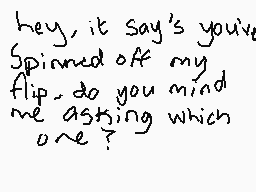 hey, it say's you've
Spinned off my
flip, do you mind
me asking which
one?